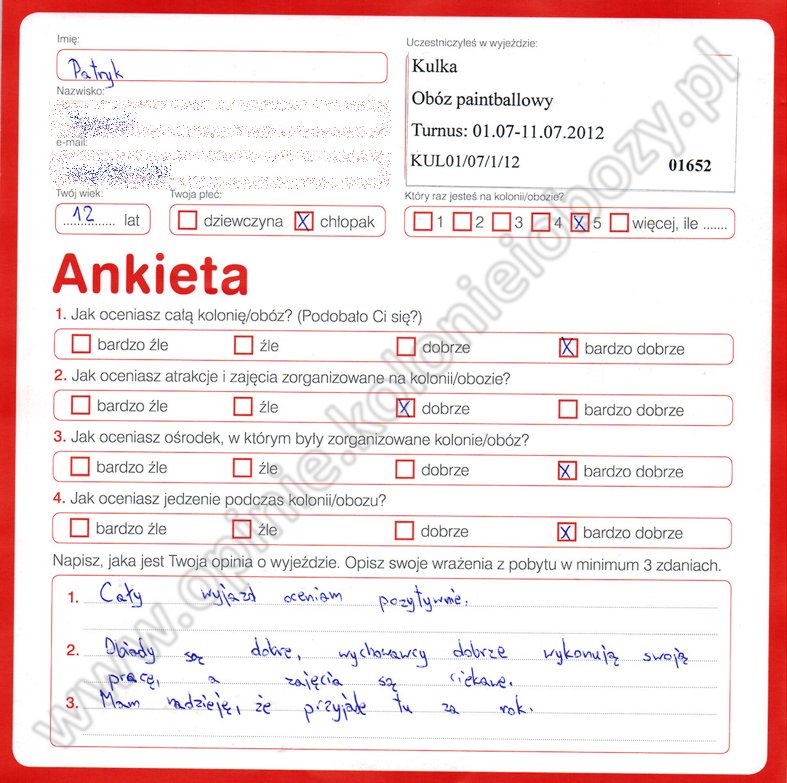 Imię:
Patryk
Nazwisko:
e-mail:
Twój wiek:
12 lat
Twoja płeć:
dziewczyna X chłopak
Uczestniczyłeś w wyjeździe:
Kulka
Obóz paintballowy
Turnus: 01.07-11.07.2012
KUL01/07/1/12 01652
Który raz jesteś na kolonii/obozie?
1 2 3 4 X 5 więcej, ile .......
Ankieta
1. Jak oceniasz całą kolonię/obóz? (Podobało Ci się?)
bardzo źle źle dobrze X bardzo dobrze
2. Jak oceniasz atrakcje i zajęcia zorganizowane na kolonii/obozie?
bardzo źle źle X dobrze bardzo dobrze
3. Jak oceniasz ośrodek, w którym były zorganizowane kolonie/obóz?
bardzo źle źle dobrze X bardzo dobrze
4. Jak oceniasz jedzenie podczas kolonii/obozu?
bardzo źle źle dobrze X bardzo dobrze
Napisz, jaka jest Twoja opinia o wyjeździe. Opisz swoje wrażenia z pobytu w minimum 3 zdaniach.
1. Cały wyjazd oceniam pozytywnie.
2. Obiady są dobre, wychowawcy dobrze wykonują swoją
pracę, a zajęcia są ciekawe.
3. Mam nadzieję, że przyjadę tu za rok.
www.opinie.kolonieiobozy.pl